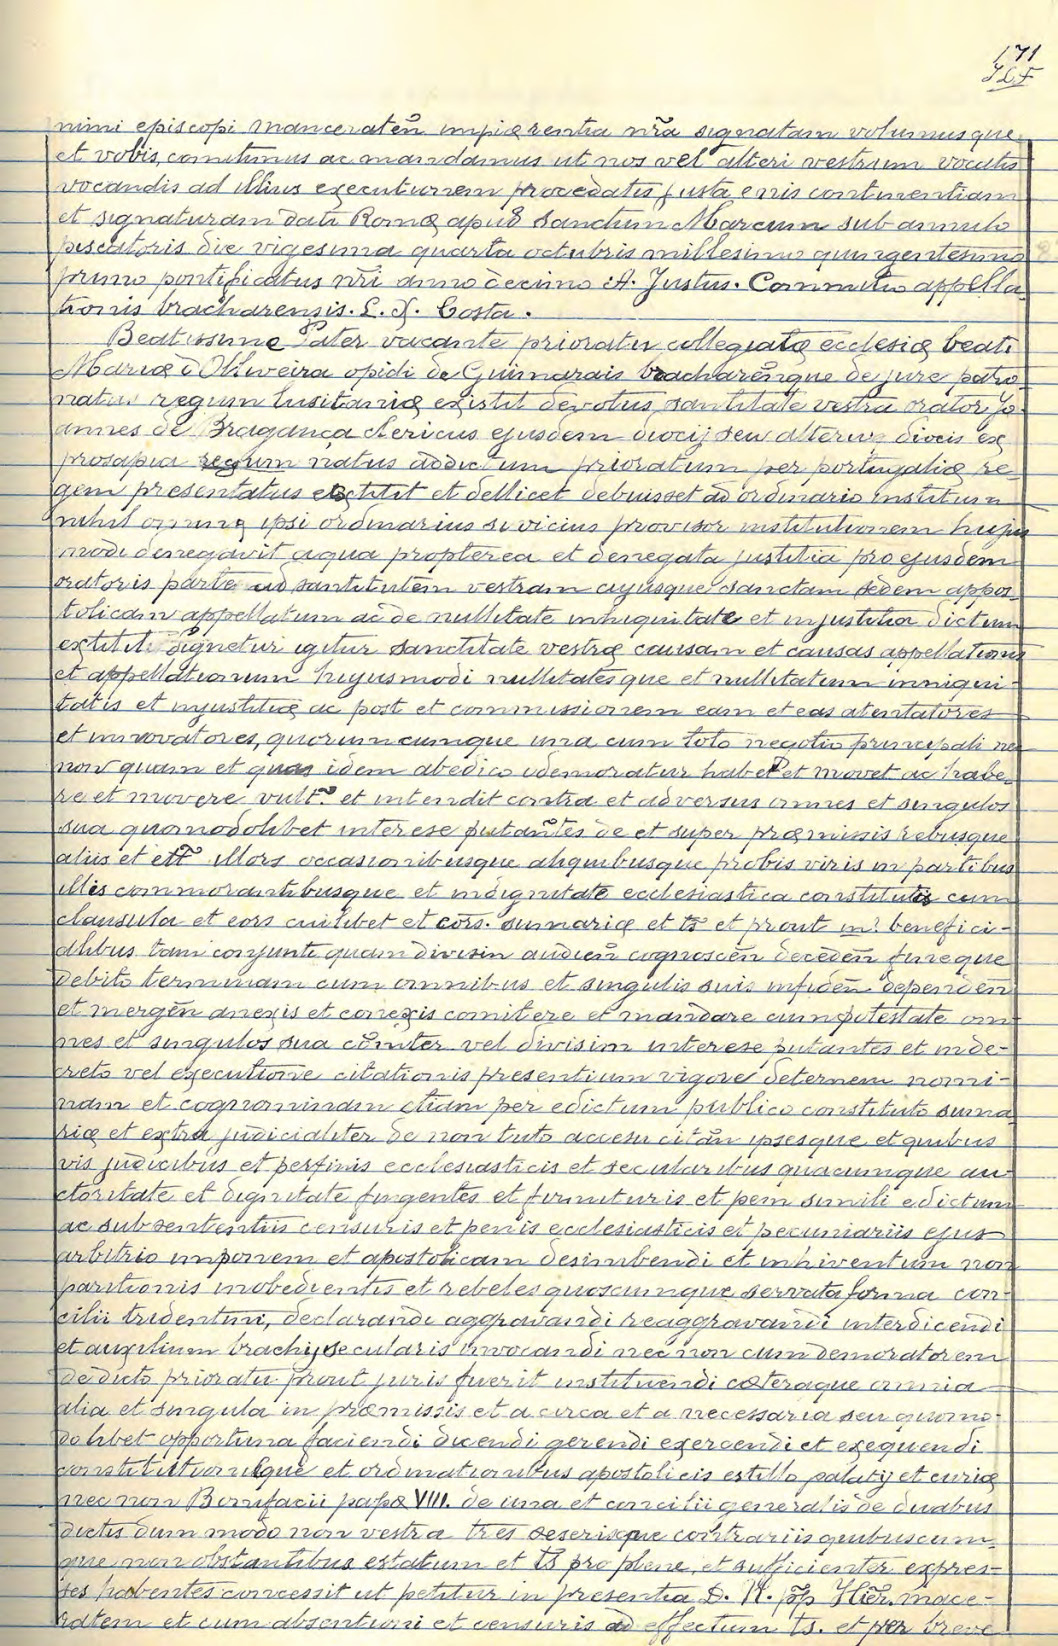 171
nimi episcopi manceratẽn impiꝙ rentia nr̃a signatam volumus que
et vobis, comitimus ac mandamus ut nos vel alteri vestrum vocatis
vocandis ad illius executionem procedatis justa ejus continentiam
et signaturam dati Romę apud Sanctum Marcum sub annulo
piscatoris die vigesima quarta octubris millesimo quingentesimo
primo pontificatus nr̃i anno decimo A. Justus. Commitio appella-
tionis bracharensis. L. X. Costa.
Beatissime Pater vacante prioratu collegiatę ecclesię beati
Marię d Oliveira opidi de Guimarais bracharẽnque de jure patro-
natus regum lusitanię existit devotus santitate vestra orator Jo-
annes de Bragança clericus ejusdem diocij seu alterius diocis ex
prosapia regum natus ad dictum prioratum per portugalię re-
gem presentatus exstitit et dellicet debuisset ad ordinario institui
nihil omniꝙ ipsi ordinarius si vicius provisor institutionem hujus
modi denegavit aqua propterea et denegata justitia pro ejusdem
oratoris parte ad santitutẽm vestram cujusque sanctam sedem appos-
tolicam appellatum ac de nullitate inniquitate et injustitia dictum
extitit. Signetur igitur sanctitate vestrę causam et causas appellationis
et appellationum hujusmodi nullitatesque et nullitatum inniqui-
tatis et injustitię ac post et commissionem eam et eas atentatores
et innovatores, quorumcumque una cum toto negotio principali nec
non quam et quas idem abedico idemoratur habet et movet ac habe-
re et movere vult. et intendit contra et adversus omnes et singulos
sua quomodolibet interese putantes de et super pręmissis rebusque
aliis et ett illors occasionibusque aliquibusque probis viris in partibus
illis commorantibusque et indignitate ecclesiastica constitutis cum
clausula et eors cuilibet et cors. sumarię et ts et prout in. benefici-
alibus tam conjunti quam divisin audien cognoscẽn decedẽn fineque
debito terminam cum omnibus et singulis suis infidẽn dependẽn
et mergẽn anexis et conexis comitere et mandare cum potestate om-
nes et singulos sua cõmiter vel divisim interese putantes et in de-
creto vel executione citationis presentium vigore deternem nomi-
nam et cognominam etiam per edictum publico constituto suma-
rię et extra judicialiter de non tuto accesu citãn ipsesque et quibus
vis judicibus et perfinis ecclesiasticis et secularibus quacumque au-
ctoritate et dignitate fugentes et funituris et pem simili edictum
ac subsententiis censuris et penis ecclesiasticis et pecuniariis ejus
arbitrio imponem et apostolicam desimbendi et inhiventum non
paritionis inobedientis et rebeles quoscumque servata forma con-
cilii tridentini, declarandi aggravandi reaggravandi interdicendi
et auxilium brachij secularis invocandi nec non cum demoratorem
de dicto prioratu prout juris fuerit instituendi cæteraque omnia
alia et singula in pręmissis et a circa et a necessaria seu quomo-
do libet opportuna faciendi dicendi gerendi exercendi et exequendi
constitutionibque et ordinationibus apostolicis estillo palatij et curię
nec non Bonifacii papę VIII. de una et concilii generalis de duabus
dictis dum modo non vestra tres seserisque contrariis quibuscum-
que non obstantibus estatum et ts pro plene, et sufficienter expres-
ses habentes concessit ut petitur in presentia D. N. pp Hier. mace-
ratem et cum absentioni et censuris ad effectum ts. et per breve